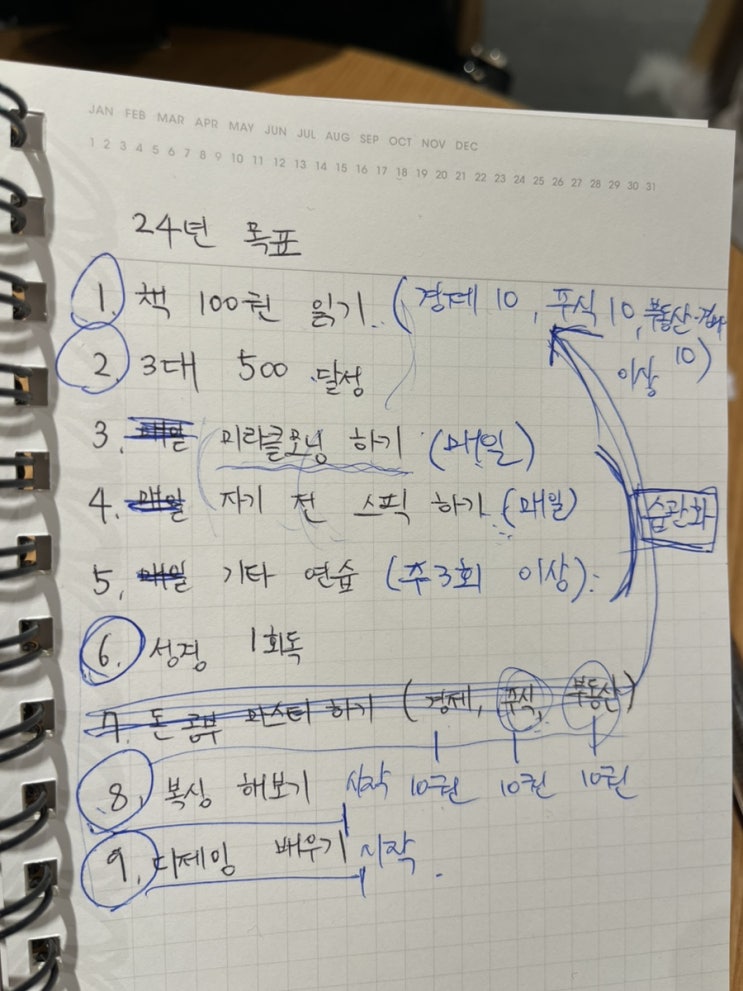 JAN FEB MAR APR MAY JUN JUL AUG SEP OCT NOV DEC
1 2 3 4 5 6 7 8 9 10 11 12 13 14 15 16 17 18 19 20 21 22 23 24 25 26 27 28 29 30 31
24년 목표
1. 책 100권 읽기. (경제 10, 주식 10, 부동산·
이상 10)
2. 3대 500 달성
3. 매일 미라클모닝 하기 (매일)
4. 매일 자기 전 스픽 하기 (매일)
습관화
5. 매일 기타 연습 (주3회 이상)
6. 성경 1회독
7. 돈 공부 마스터 하기 (경제, 주식, 부동산)
8. 복싱 해보기 시작 10권 10권 10권
9. 디제잉 배우기 시작